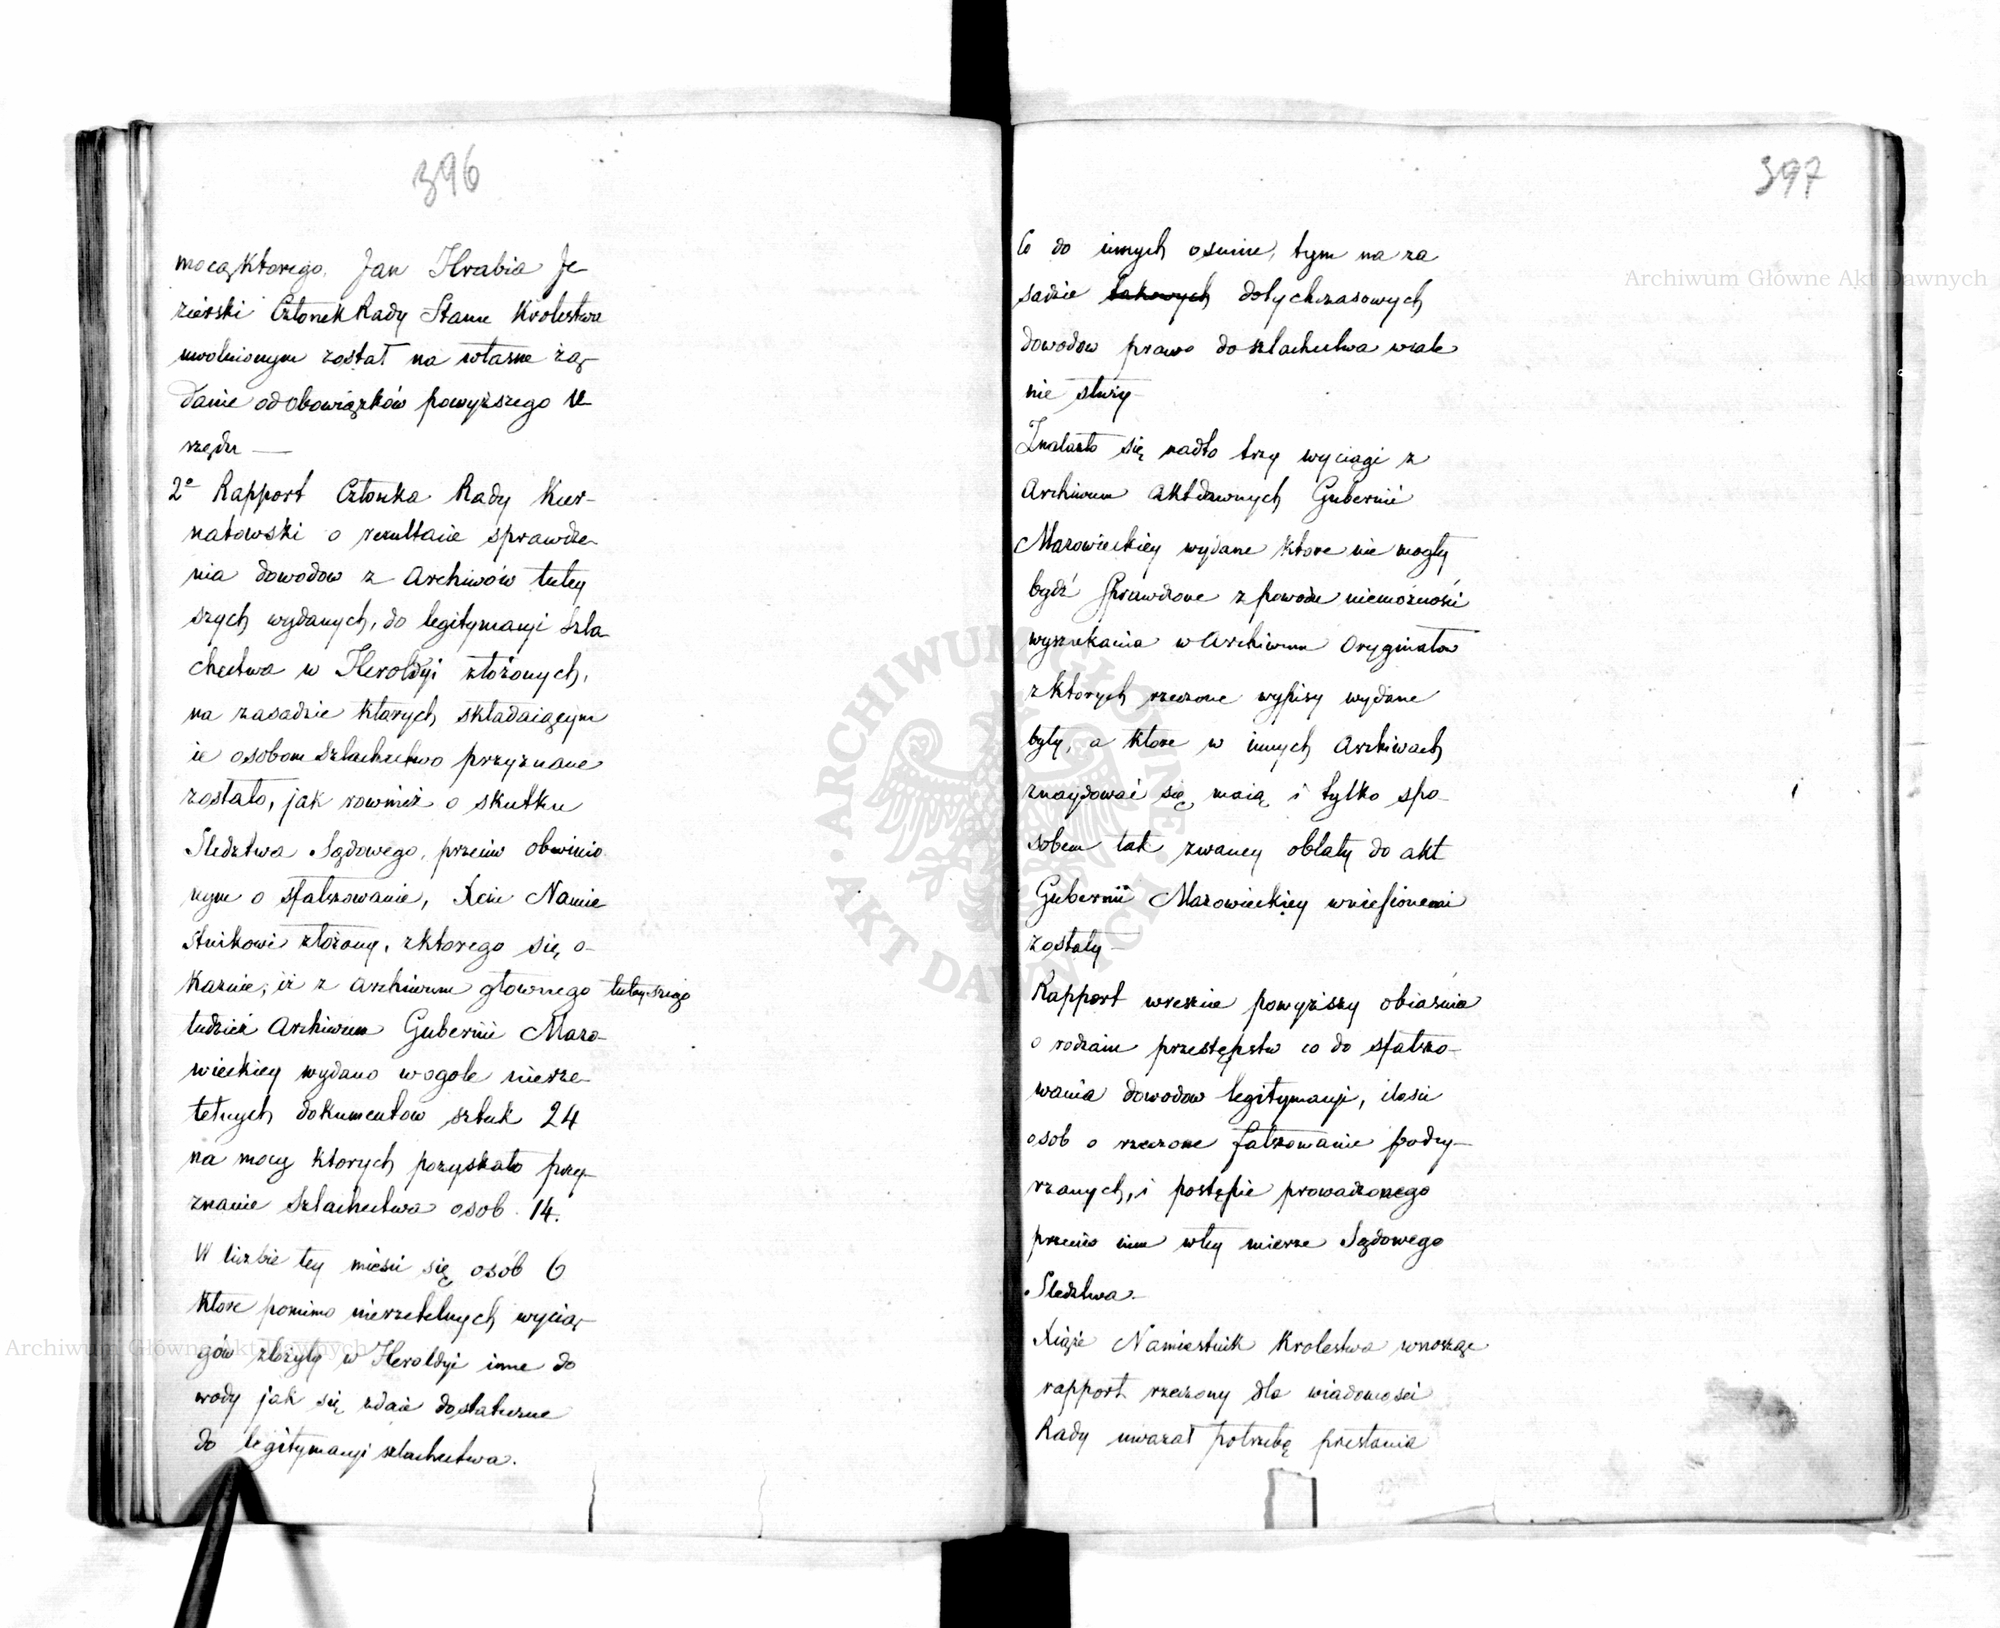 396
mocą ktorego, Jan Hrabia Je
zierski Członek Rady Stanu Krolestwa
uwolnionym został na własne żą-
danie od obowiązków powyższego U
rzędu —
2o Rapport Członka Rady Kier-
natowski o rezultacie sprawdze-
nia dowodow z Archiwów tutey
szych wydanych, do legitymacyi Szla
chectwa w Heroldyi złożonych,
na zasadzie ktorych składaiącym
ie osobom Szlachectwo przyznane
zostało, jak rownież o skutku
Sledztwa Sądowego, przeciw obwinio
nym o sfałszowanie, Xciu Namie
stnikowi złożony, z ktorego się o-
kazuie, iż z Archiwum głownego tuteyszego
tudzież Archiwum Gubernii Mazo-
wieckiey wydano w ogole nierze-
telnych dokumentow sztuk 24
na mocy ktorych pozyskało przy-
znanie Szlachectwa osob 14.
W liczbie tey mieści się osób 6
ktore pomimo nierzetelnych wycią-
gów złożyły w Heroldyi inne do
wody jak się zdaie dostateczne
do legitymacyi szlachectwa.
397
Co do innych osmiu, tym na za
sadzie takowych dotychczasowych
dowodow prawo do szlachectwa wcale
nie służy
Znalazło się nadto trzy wyciągi z
Archiwum Akt dawnych Gubernii
Mazowieckiey wydane ktore nie mogły
bydź sprawdzone z powodu niemożności
wyszukania w Archiwum Oryginałow
z ktorych rzeczone wypisy wydane
były, a ktore w innych Archiwach
znaydować się maią i tylko spo-
sobem tak zwaney oblaty do akt
Gubernii Mazowieckiey wniesionemi
zostały —
Rapport wreszcie powyższy obiasnia
o rodzaiu przestępstw co do sfałszo-
wania dowodow legitymacyi, ilosci
osob o rzeczone fałszowanie podey-
rzanych, i postępie prowadzonego
przeciw nim w tey mierze Sądowego
Sledztwa.
Xiąże Namiestnik Krolestwa wnosząc
rapport rzeczony dla wiadomosci
Rady uważał potrzebę przesłania
ARCHIWUM GŁÓWNE AKT DAWNYCH
Archiwum Główne Akt Dawnych
Archiwum Główne Akt Dawnych